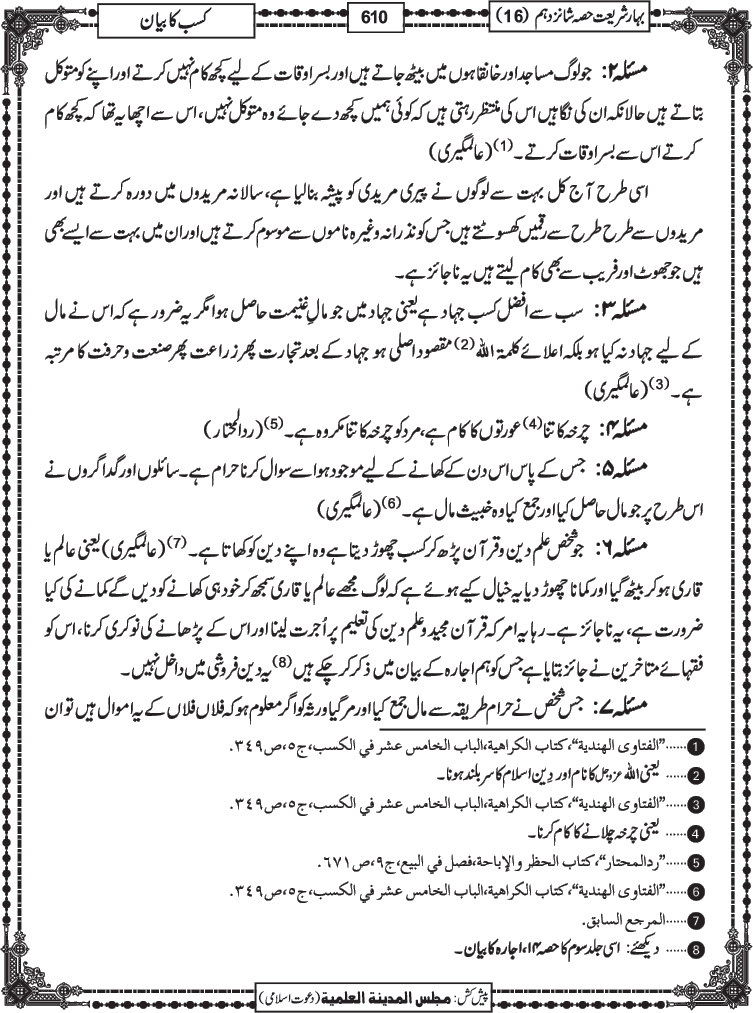 بہار شریعت حصہ شانزدہم (16)
610
کسب کا بیان
مسئلہ ۲: جو لوگ مساجد اور خانقاہوں میں بیٹھ جاتے ہیں اور بسر اوقات کے لیے کچھ کام نہیں کرتے اور اپنے کو متوکل
بتاتے ہیں حالانکہ ان کی نگاہیں اس کی منتظر رہتی ہیں کہ کوئی ہمیں کچھ دے جائے وہ متوکل نہیں، اس سے اچھا یہ تھا کہ کچھ کام
کرتے اس سے بسر اوقات کرتے۔(1) (عالمگیری)
اسی طرح آج کل بہت سے لوگوں نے پیری مریدی کو پیشہ بنالیا ہے، سالانہ مریدوں میں دورہ کرتے ہیں اور
مریدوں سے طرح طرح سے رقمیں کھسوٹتے ہیں جس کو نذرانہ وغیرہ ناموں سے موسوم کرتے ہیں اور ان میں بہت سے ایسے بھی
ہیں جو جھوٹ اور فریب سے بھی کام لیتے ہیں یہ ناجائز ہے۔
مسئلہ ۳: سب سے افضل کسب جہاد ہے یعنی جہاد میں جو مالِ غنیمت حاصل ہوا مگر یہ ضرور ہے کہ اس نے مال
کے لیے جہاد نہ کیا ہو بلکہ اعلائے کلمۃ اللہ(2) مقصود اصلی ہو جہاد کے بعد تجارت پھر زراعت پھر صنعت و حرفت کا مرتبہ
ہے۔(3) (عالمگیری)
مسئلہ ۴: چرخہ کاتنا(4) عورتوں کا کام ہے، مرد کو چرخہ کاتنا مکروہ ہے۔(5) (ردالمحتار)
مسئلہ ۵: جس کے پاس اس دن کے کھانے کے لیے موجود ہو اسے سوال کرنا حرام ہے۔ سائلوں اور گداگروں نے
اس طرح پر جو مال حاصل کیا اور جمع کیا وہ خبیث مال ہے۔(6) (عالمگیری)
مسئلہ ۶: جو شخص علم دین و قرآن پڑھ کر کسب چھوڑ دیتا ہے وہ اپنے دین کو کھاتا ہے۔(7) (عالمگیری) یعنی عالم یا
قاری ہو کر بیٹھ گیا اور کمانا چھوڑ دیا یہ خیال کیے ہوئے ہے کہ لوگ مجھے عالم یا قاری سمجھ کر خود ہی کھانے کو دیں گے کمانے کی کیا
ضرورت ہے، یہ ناجائز ہے۔ رہا یہ امر کہ قرآن مجید و علم دین کی تعلیم پر اُجرت لینا اور اس کے پڑھانے کی نوکری کرنا، اس کو
فقہائے متاخرین نے جائز بتایا ہے جس کو ہم اجارہ کے بیان میں ذکر کر چکے ہیں(8) یہ دین فروشی میں داخل نہیں۔
مسئلہ ۷: جس شخص نے حرام طریقہ سے مال جمع کیا اور مر گیا ورثہ کو اگر معلوم ہو کہ فلاں فلاں کے یہ اموال ہیں تو ان
1......"الفتاوی الهندیة"، کتاب الکراهیة، الباب الخامس عشر في الکسب، ج٥، ص٣٤٩.
2...... یعنی اللہ عزوجل کا نام اور دِین اسلام کا سر بلند ہونا۔
3......"الفتاوی الهندیة"، کتاب الکراهیة، الباب الخامس عشر في الکسب، ج٥، ص٣٤٩.
4...... یعنی چرخہ چلانے کا کام کرنا۔
5......"ردالمحتار"، کتاب الحظر والإباحة، فصل في البیع، ج٩، ص٦٧١.
6......"الفتاوی الهندیة"، کتاب الکراهیة، الباب الخامس عشر في الکسب، ج٥، ص٣٤٩.
7......المرجع السابق.
8...... دیکھئے: اسی جلد سوم کا حصہ ۱۴، اجارہ کا بیان۔
پیش کش: مجلس المدینة العلمیة (دعوت اسلامی)